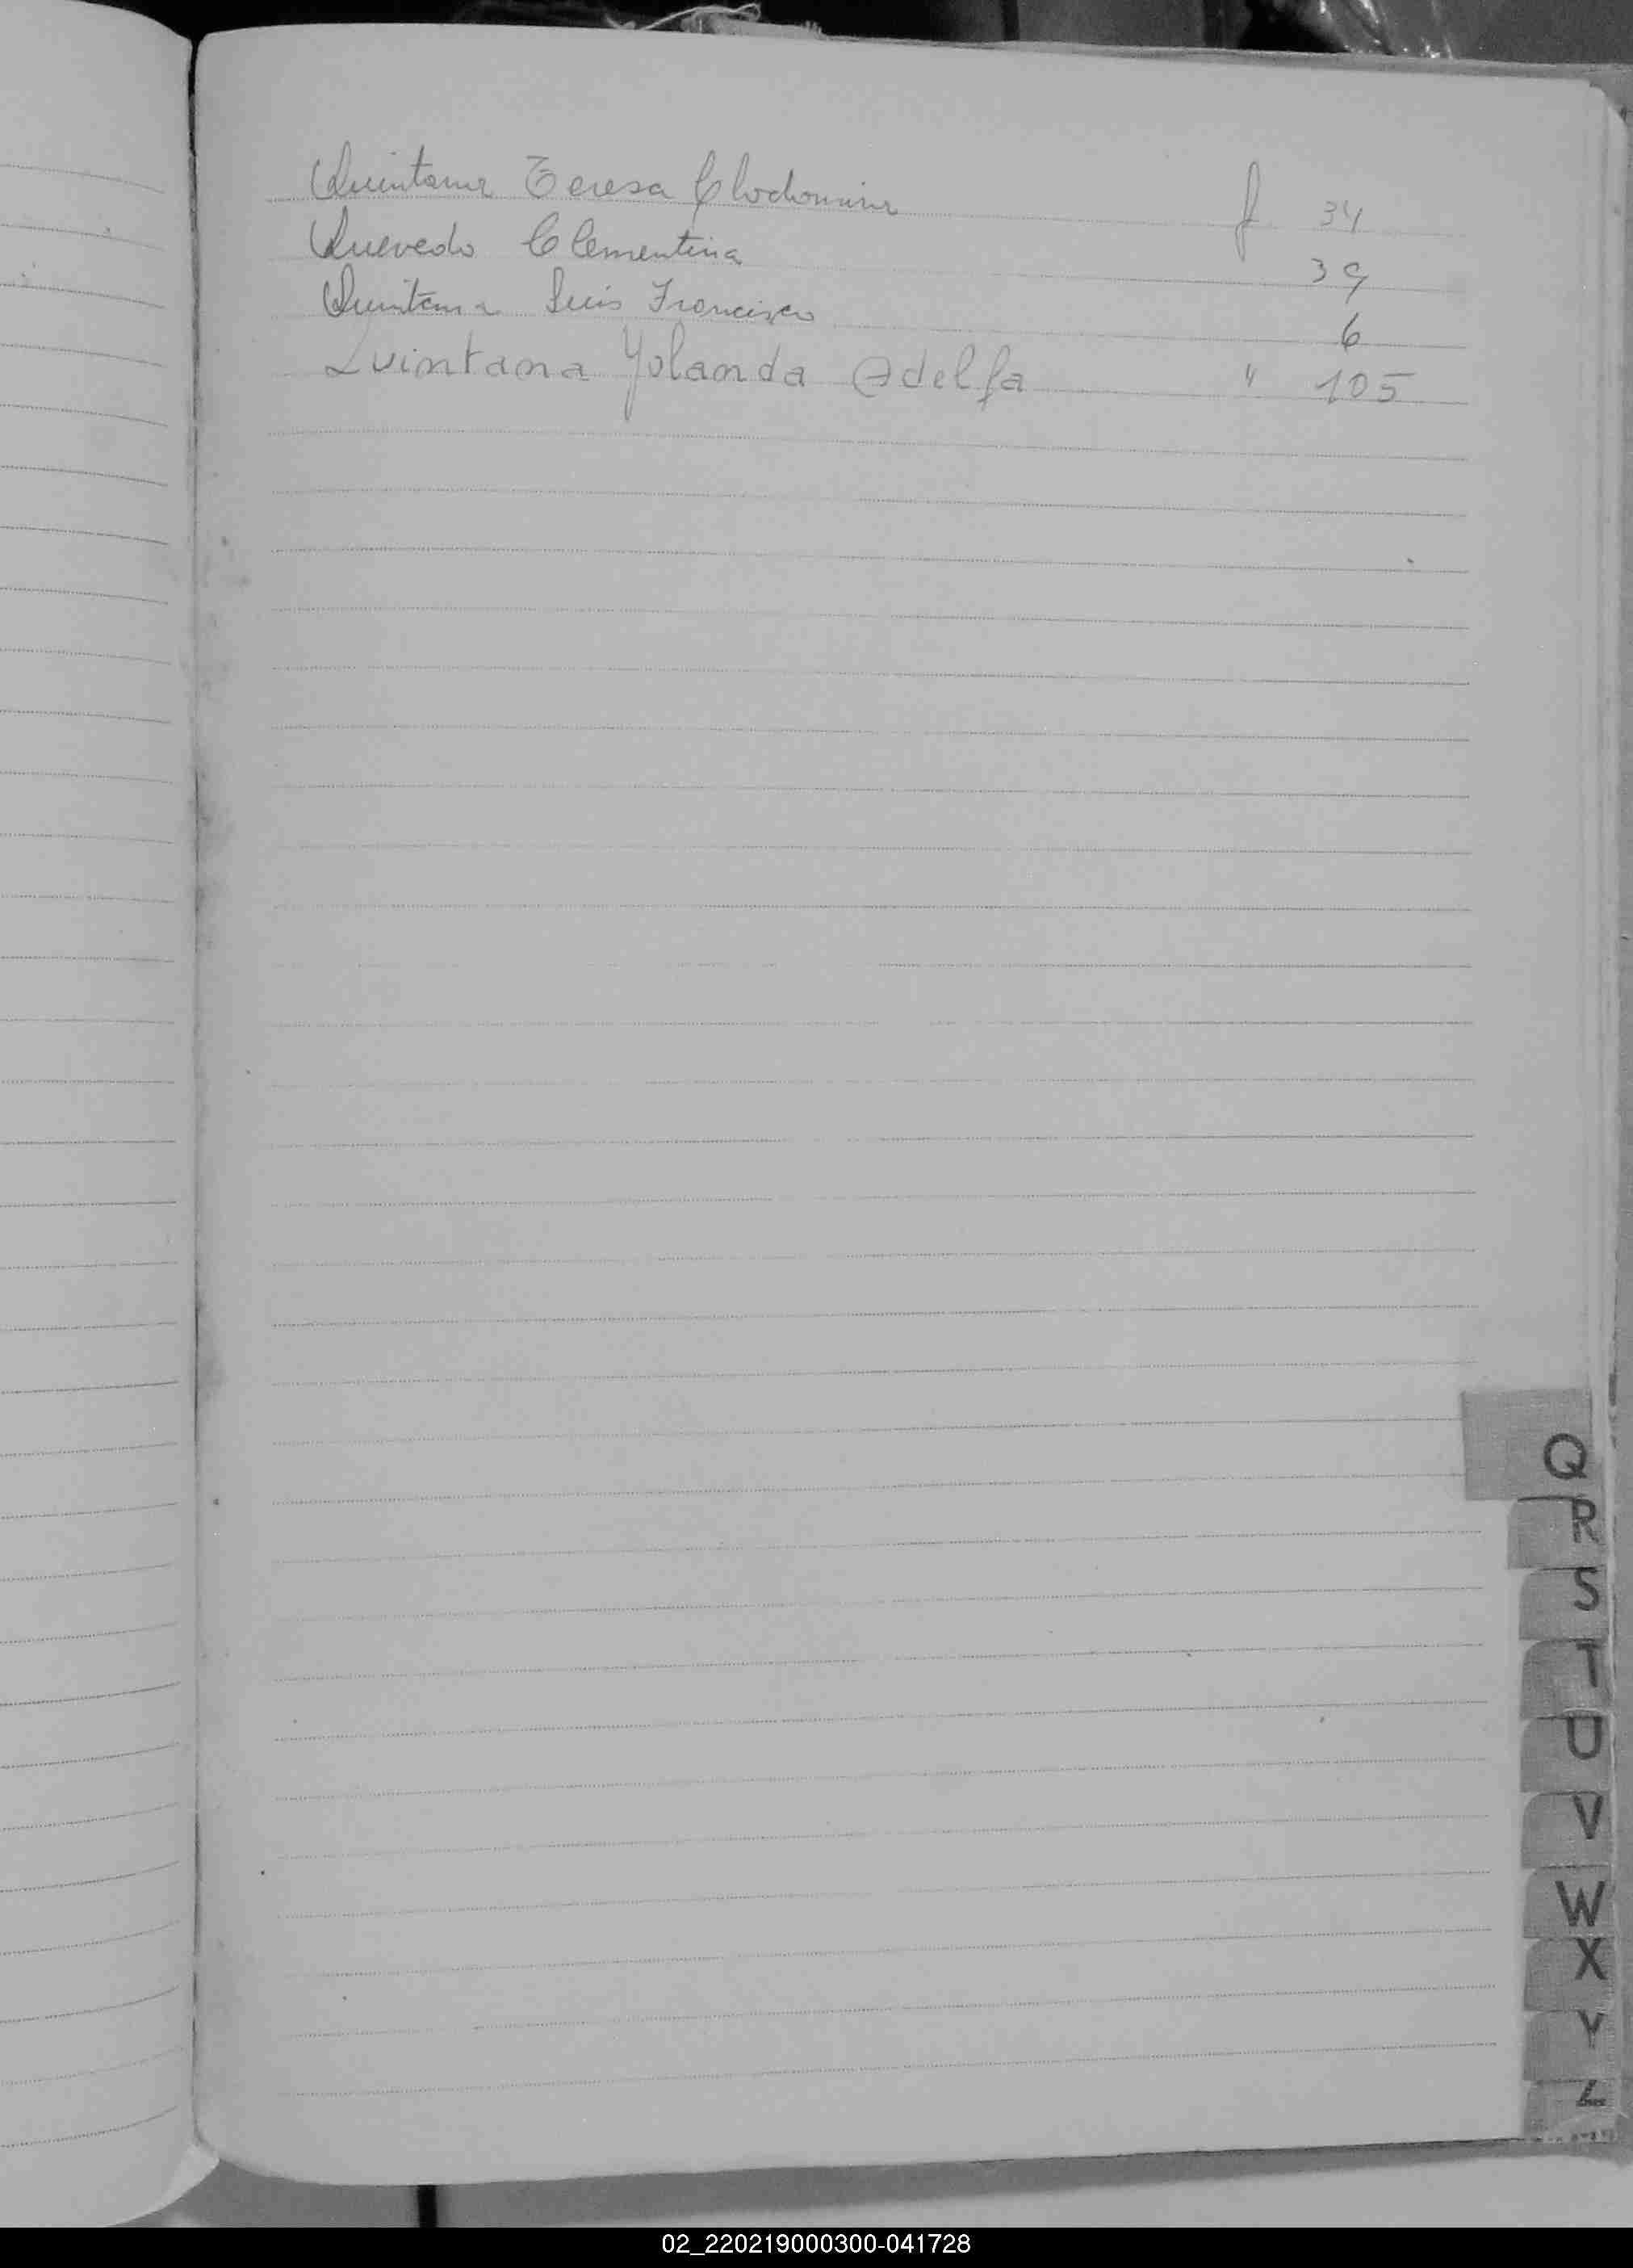 Quintana Teresa Clodomira f 34
Quevedo Clementina 39
Quintana Luis Francisco 6
Quintana Yolanda Adelfa " 105
Q
R
S
T
U
V
W
X
Y
Z
02_220219000300-041728